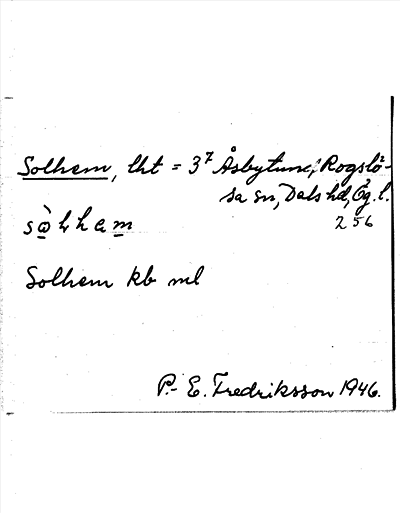 Solhem, lht = 3⁷ Åsbytunu, Rogslö-
sa sn, Dals hd, Ög. l.
256
sø̀lhem
Solhem kb ml
P.-E. Fredriksson 1946.